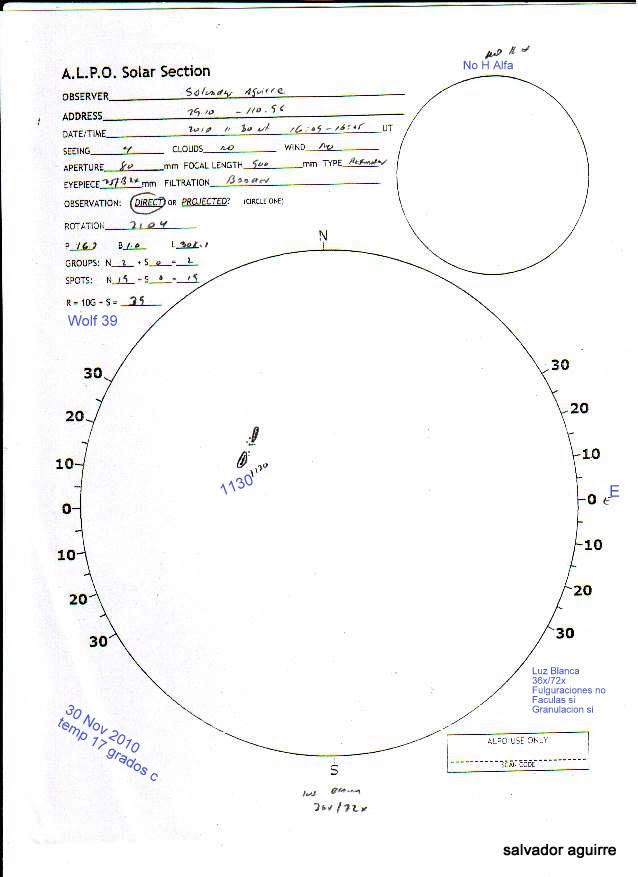 No H Alfa
A.L.P.O. Solar Section
OBSERVER Salvador Aguirre
ADDRESS 29.10 -110.96
DATE/TIME 2010 11 30 UT 16:05-16:15 UT
SEEING CLOUDS NO WIND NO
APERTURE 80 mm FOCAL LENGTH 900 mm TYPE
EYEPIECE mm FILTRATION
OBSERVATION: DIRECT OR PROJECTED? (CIRCLE ONE)
ROTATION 2104
P B 1.0 L
GROUPS: N 2 + S 0 = 2
SPOTS: N 19 - S 0 = 19
R = 10G - S = 39
Wolf 39
N
30 30
20 20
10 10
1130 1130
0 0 E E
10 10
20 20
30 30
Luz Blanca
36x/72x
Fulguraciones no
Faculas si
Granulacion si
30 Nov 2010
temp 17 grados c
ALPO USE ONLY
SCAN CODE
S
Luz Blanca
36x/72x
salvador aguirre